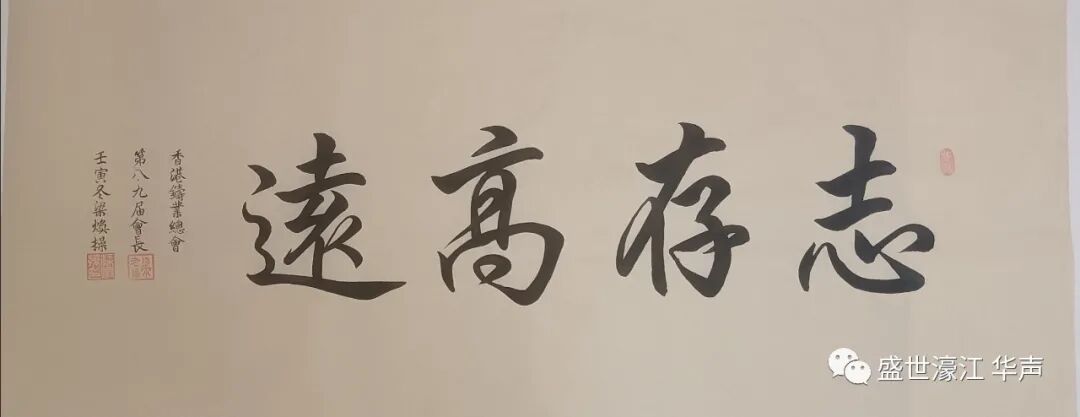 志存高遠
香港鑄業總會
第八九届會長
壬寅冬梁煥操
盛世濠江 华声